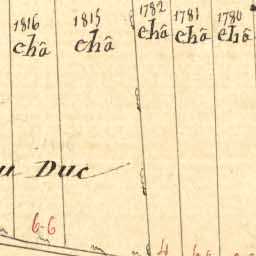 1816 1815 1782 1781 1780
châ châ châ châ châ
u Duc
6-6